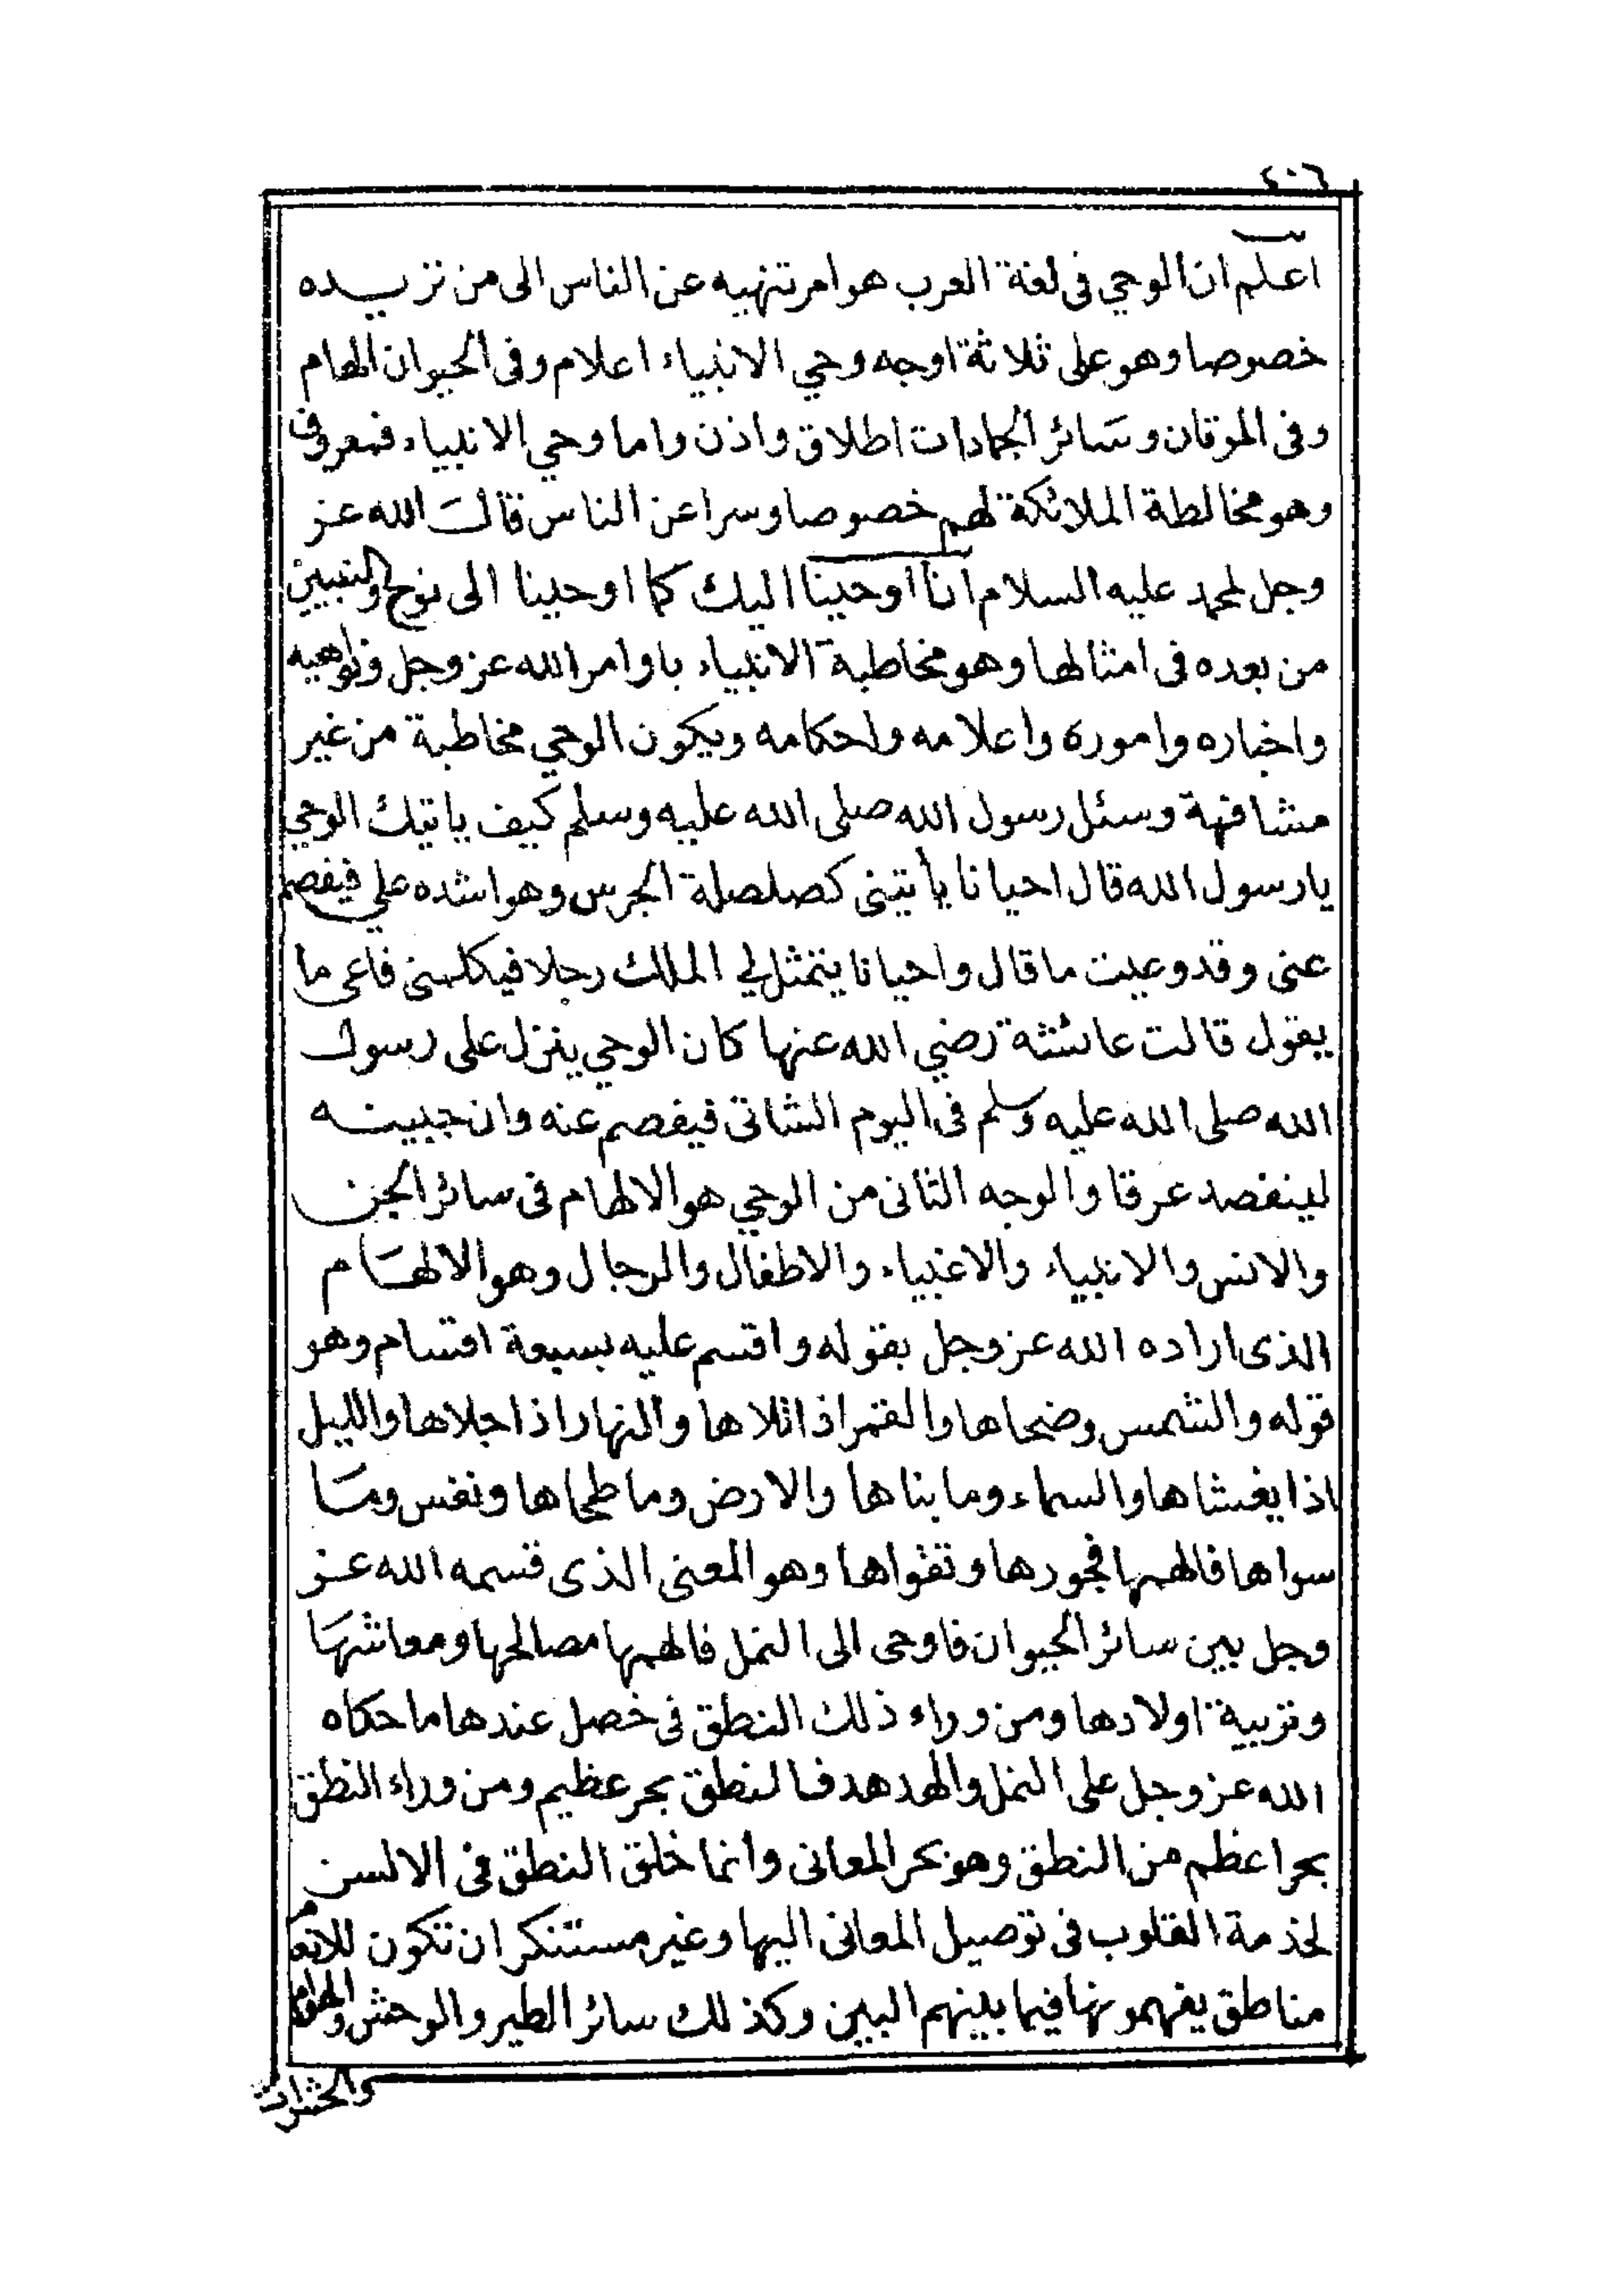 ٤٠٦
اعلم ان الوحي فى لغة العرب هو امر تنهيه عن الناس الى من تزيده
خصوصا وهو على ثلاثة اوجه وحي الانبياء اعلام وفى الحيوان الهام
وفى الموتان وسائر الجمادات اطلاق واذن واما وحي الانبياء فمعروف
وهو مخالطة الملائكة لهم خصوصا وسرا عن الناس قال الله عز
وجل لمحمد عليه السلام انا اوحينا اليك كما اوحينا الى نوح والنبيين
من بعده فى امثالها وهو مخاطبة الانبياء باوامر الله عز وجل ونواهيه
واخباره واموره واعلامه واحكامه ويكون الوحي مخاطبة من غير
مشافهة وسئل رسول الله صلى الله عليه وسلم كيف ياتيك الوحي
يا رسول الله قال احيانا يأتينى كصلصلة الجرس وهو اشده علي فيفصم
عنى وقد وعيت ما قال واحيانا يتمثل لي الملك رجلا فيكلمنى فاعى ما
يقول قالت عائشة رضي الله عنها كان الوحي ينزل على رسول
الله صلى الله عليه وسلم فى اليوم الشاتى فيفصم عنه وان جبينه
لينفصد عرقا والوجه الثانى من الوحي هو الالهام فى سائر الجن
والانس والانبياء والاغبياء والاطفال والرجال وهو الالهام
الذى اراده الله عز وجل بقوله واقسم عليه بسبعة اقسام وهو
قوله والشمس وضحاها والقمر اذا تلاها والنهار اذا جلاها والليل
اذا يغشاها والسماء وما بناها والارض وما طحاها ونفس وما
سواها فالهمها فجورها وتقواها وهو المعنى الذى قسمه الله عز
وجل بين سائر الحيوان فاوحى الى النمل فالهمها مصالحها ومعاشها
وتربية اولادها ومن وراء ذلك النطق فى خصل عندها ما حكاه
الله عز وجل على النمل والهدهد فالنطق بحر عظيم ومن وراء النطق
بحر اعظم من النطق وهو بحر المعانى وانما خلق النطق فى الالسن
لخدمة القلوب فى توصيل المعانى اليها وغير مستنكر ان تكون للانعم
مناطق يفهمونها فيما بينهم البين وكذلك سائر الطير والوحش والهوام
والحشرات